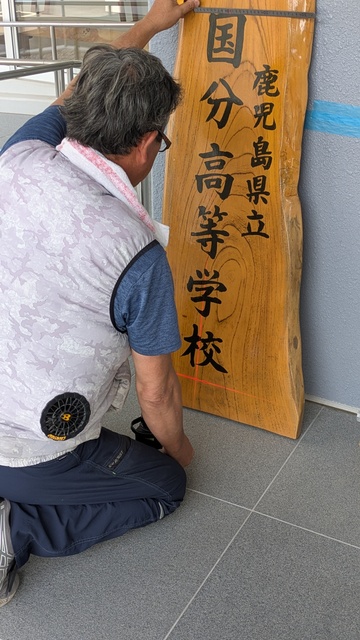 鹿児島県立
国分高等学校